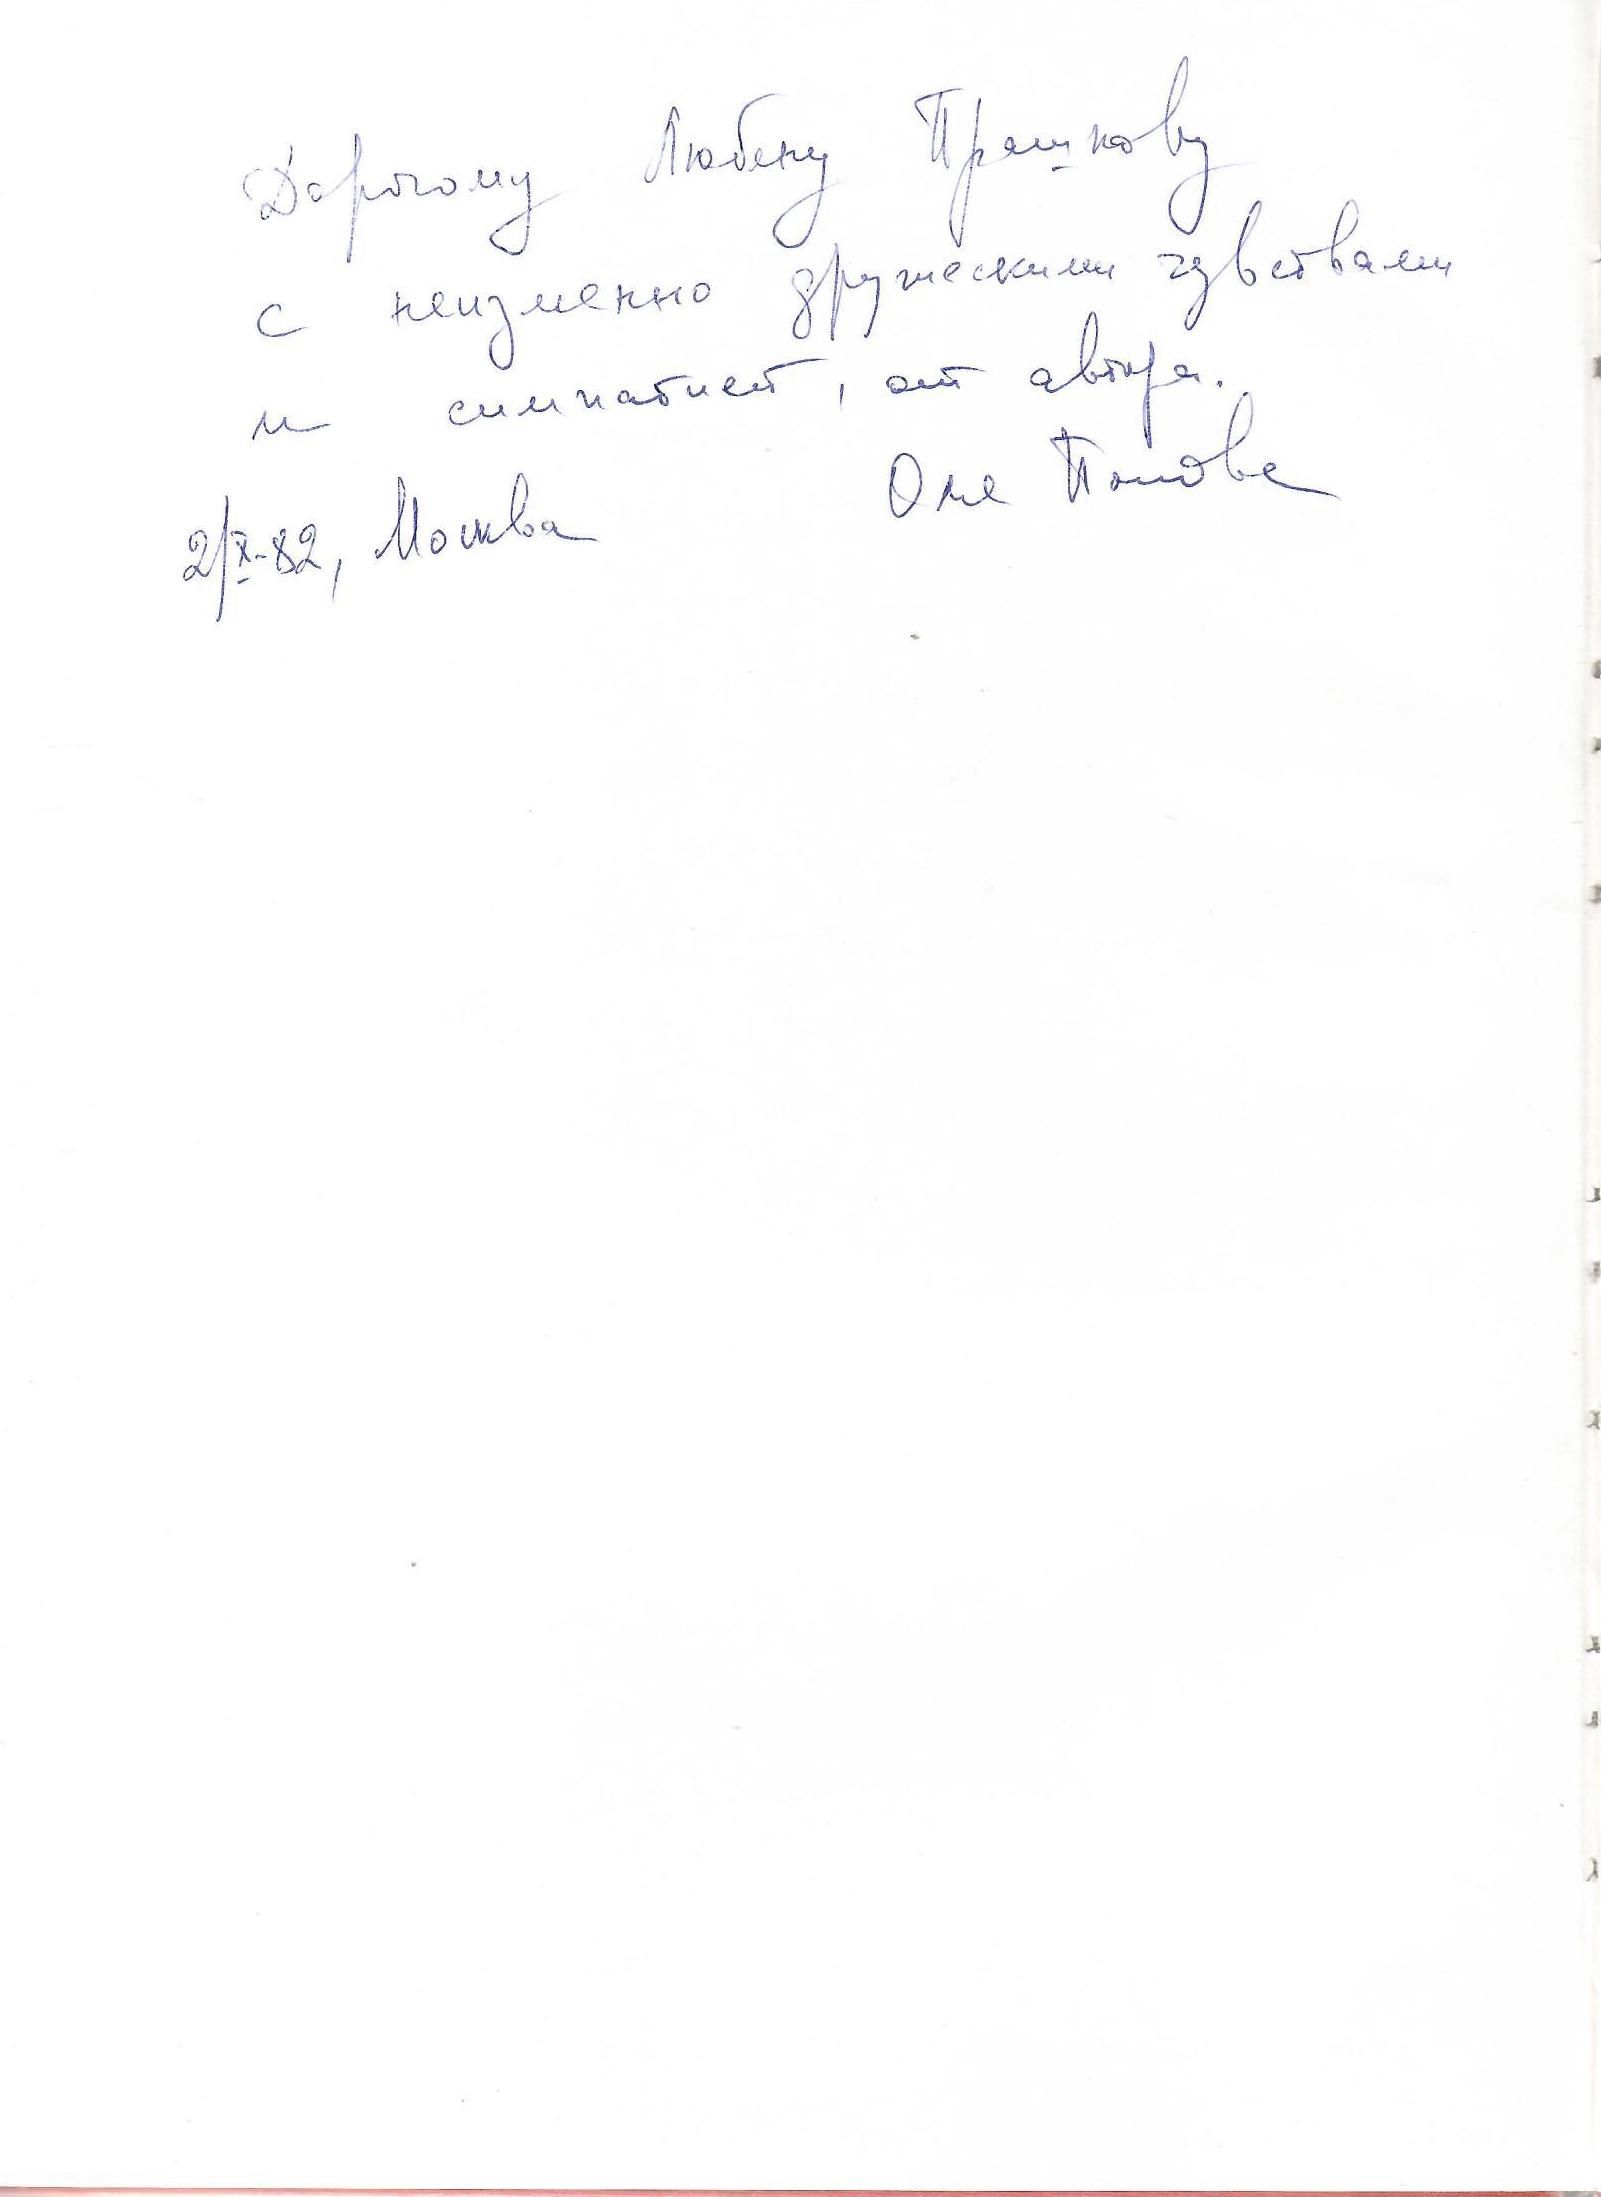 Дорогому Любену Прашкову
с неизменно дружескими чувствами
и симпатией, от автора.
Оля Попова
2/X-82, Москва